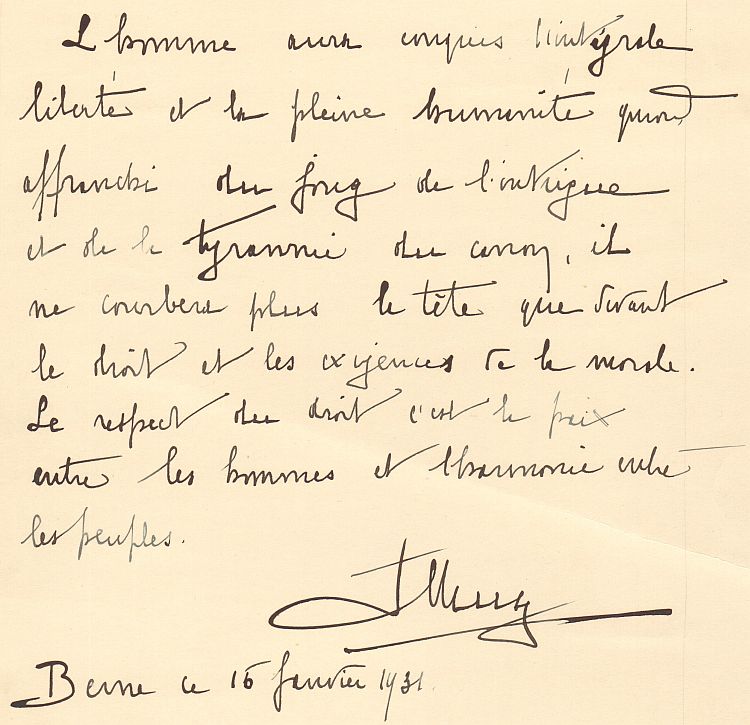 L'homme aura conquis l'intégrale
liberté et la pleine humanité quand
affranchi du joug de l'intrigue
et de la tyrannie du canon, il
ne courbera plus la tête que devant
le droit et les exigences de la morale.
Le respect du droit c'est la paix
entre les hommes et l'harmonie entre
les peuples.
Berne ce 16 janvier 1931.